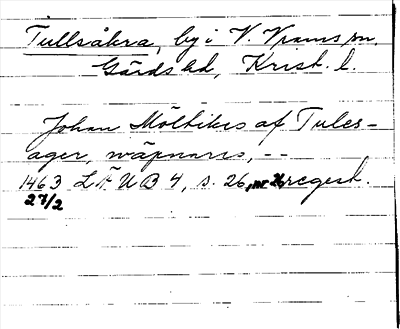 Tullsåkra, by i V. Vrams sn,
Gärds hd, Krist. l.
Johan Möltikes af Tules-
ager, wäpnare, --
1463 LÄUB 4, s. 26, nr 26 regest.
27/2